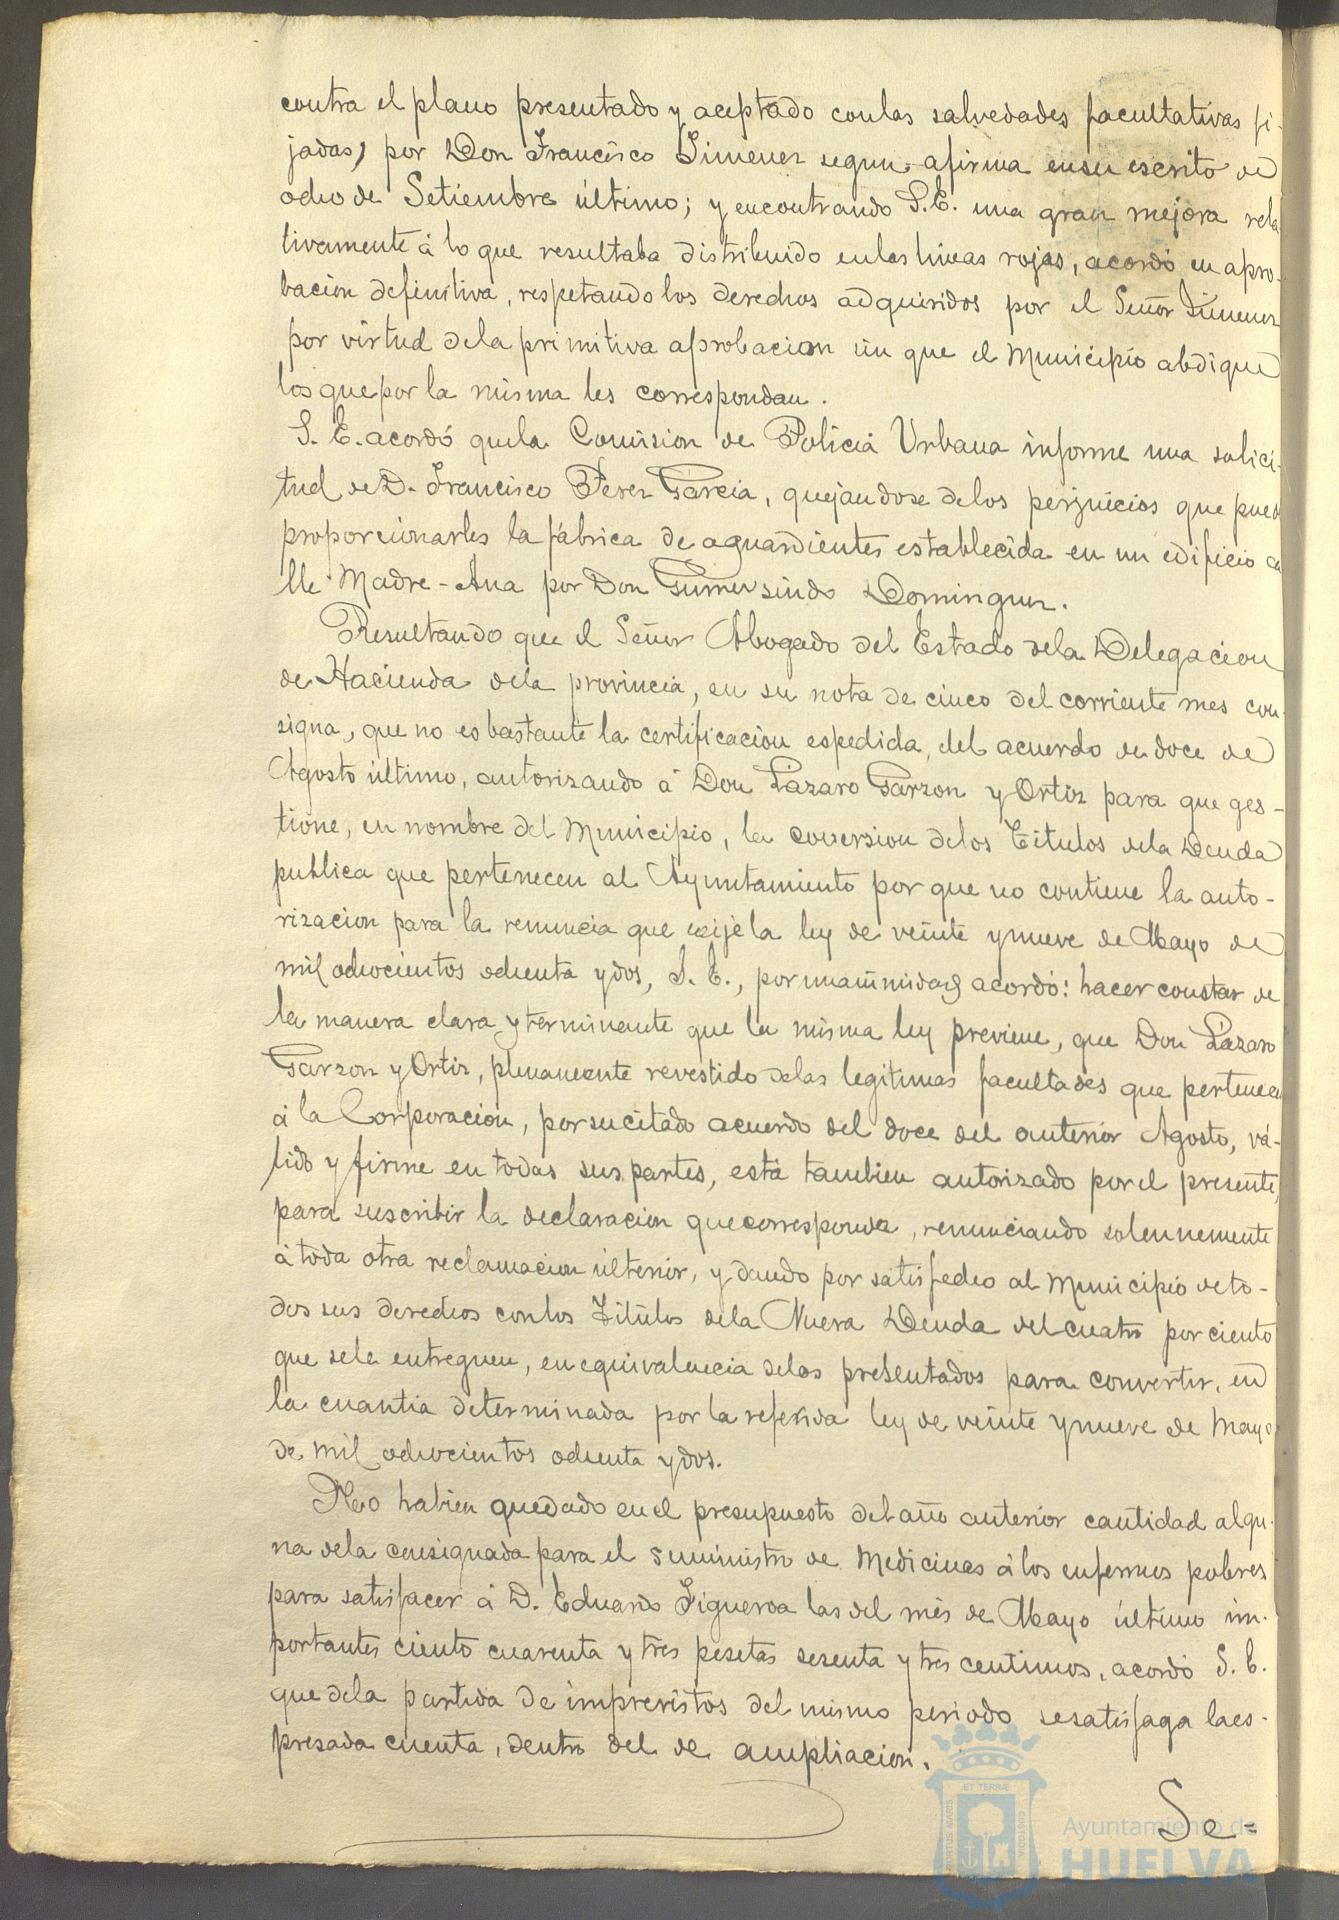 contra el plano presentado y aceptado con las salvedades facultativas fi-
jadas, por Don Francisco Jimenez segun afirma en su escrito de
ocho de Setiembre último; y encontrando S. E. una gran mejora rela
tivamente á lo que resultaba distribuido en las lineas rojas, acordó su apro-
bacion definitiva, respetando los derechos adquiridos por el Señor Jimenez
por virtud de la primitiva aprobacion sin que el Municipio abdique
los que por la misma les correspondan.
S. E. acordó que la Comision de Policia Urbana informe una solici-
tud de D. Francisco Perez Garcia, quejandose de los perjuicios que pued
proporcionarles la fábrica de aguardientes establecida en un edificio ca
lle Madre-Ana por Don Gumersindo Dominguez.
Resultando que el Señor Abogado del Estado de la Delegacion
de Hacienda de la provincia, en su nota de cinco del corriente mes con-
signa, que no es bastante la certificacion espedida, del acuerdo de doce de
Agosto último, autorizando á Don Lázaro Garzon y Ortiz para que ges-
tione, en nombre del Municipio, la coversion de los Titulos de la Deuda
publica que pertenecen al Ayuntamiento por que no contiene la auto-
rizacion para la renuncia que exije la ley de veinte y nueve de Mayo de
mil ochocientos ochenta y dos, S. E., por unanimidad acordó: hacer constar de
la manera clara y terminante que la misma ley previene, que Don Lázaro
Garzon y Ortiz, plenamente revestido de las legitimas facultades que pertenecen
á la Corporacion, por su citado acuerdo del doce del anterior Agosto, vá-
lido y firme en todas sus partes, está tambien autorizado por el presente,
para suscribir la declaracion que corresponda, renunciando solennemente
á toda otra reclamacion ulterior, y dando por satisfecho al Municipio de to-
dos sus derechos con los Titulos de la Nueva Deuda del cuatro por ciento
que se le entreguen, en equivalencia de los presentados para convertir, en
la cuantia determinada por la referida ley de veinte y nueve de Mayo
de mil ochocientos ochenta y dos.
No habien quedado en el presupuesto del año anterior cantidad algu-
na de la consignada para el suministro de Medicinas á los enfermos pobres
para satisfacer á D. Eduardo Figueroa las del mes de Mayo último im-
portantes ciento cuarenta y tres pesetas sesenta y tres centimos, acordó S. E.
que de la partida de imprevistos del mismo periodo se satisfaga la es-
presada cuenta, dentro del de ampliacion.
Se=
PORTUS MARIS ET TERRÆ CUSTODIA
Ayuntamiento de
HUELVA